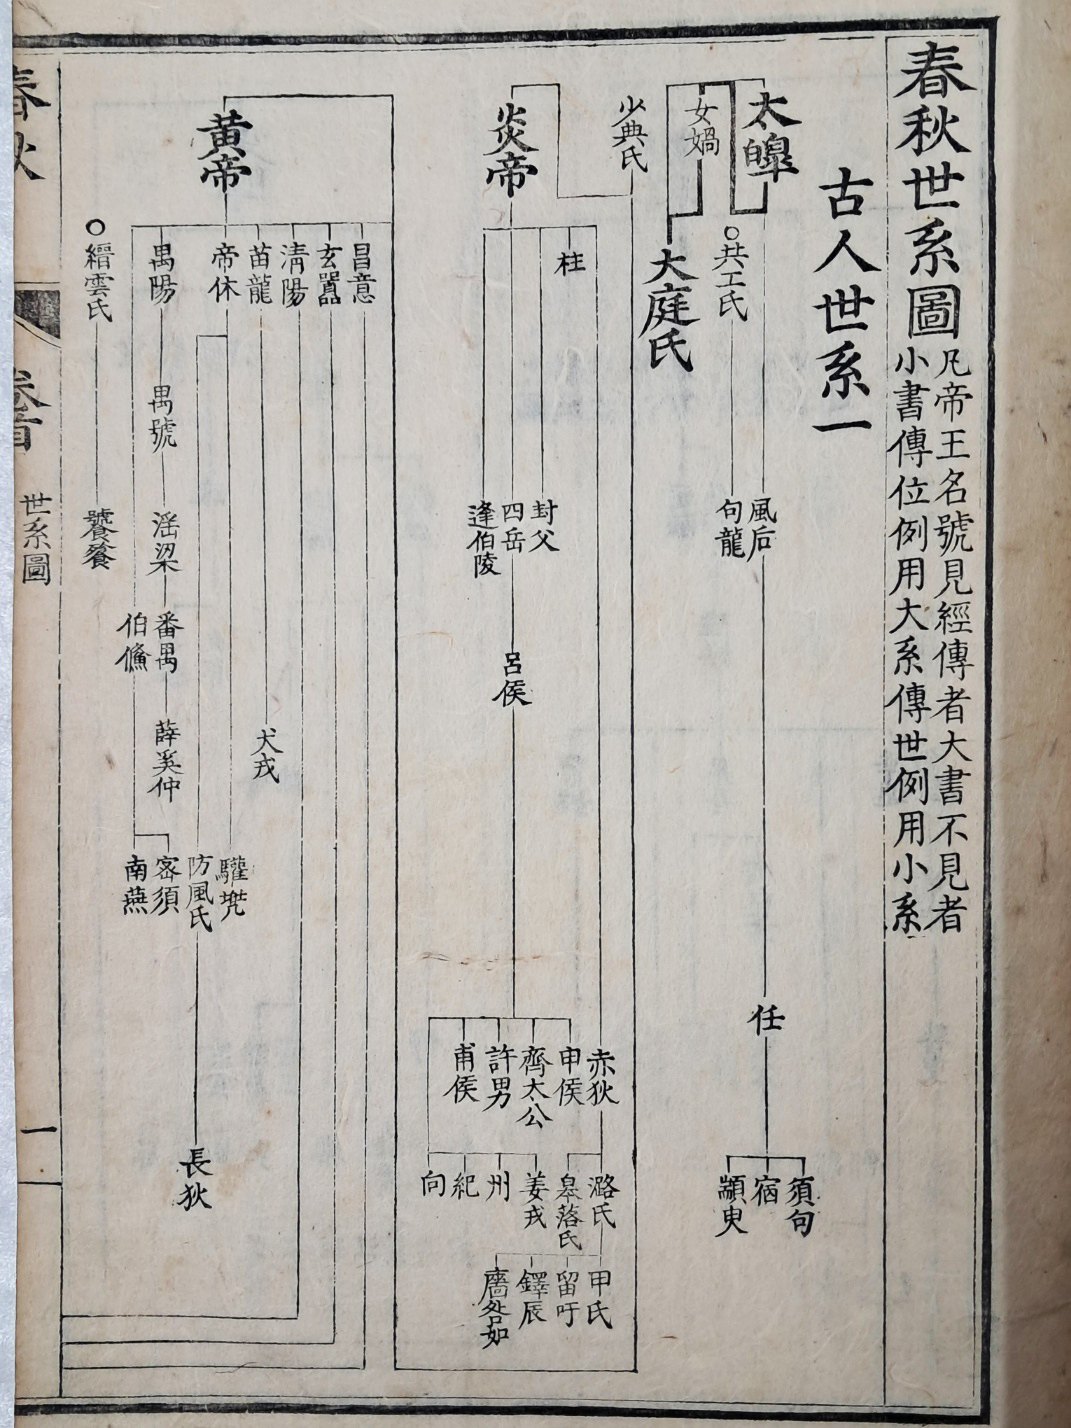 春秋世系圖
凡帝王名號見經傳者大書不見者
小書傳位例用大系傳世例用小系
古人世系一
太皥
女媧
大庭氏
共工氏
風后
句龍
任
須句
宿
顓臾
少典氏
炎帝
柱
封父
四岳
逄伯陵
呂侯
赤狄
申侯
齊太公
許男
甫侯
潞氏
皋落氏
姜戎
州
紀
向
甲氏
留吁
鐸辰
廧咎如
黃帝
昌意
玄囂
清陽
苗龍
帝休
禺陽
縉雲氏
禺號
淫梁
饕餮
番禺
伯鯈
薛奚仲
犬戎
驩兜
防風氏
密須
南燕
長狄
春秋
卷首
世系圖
一